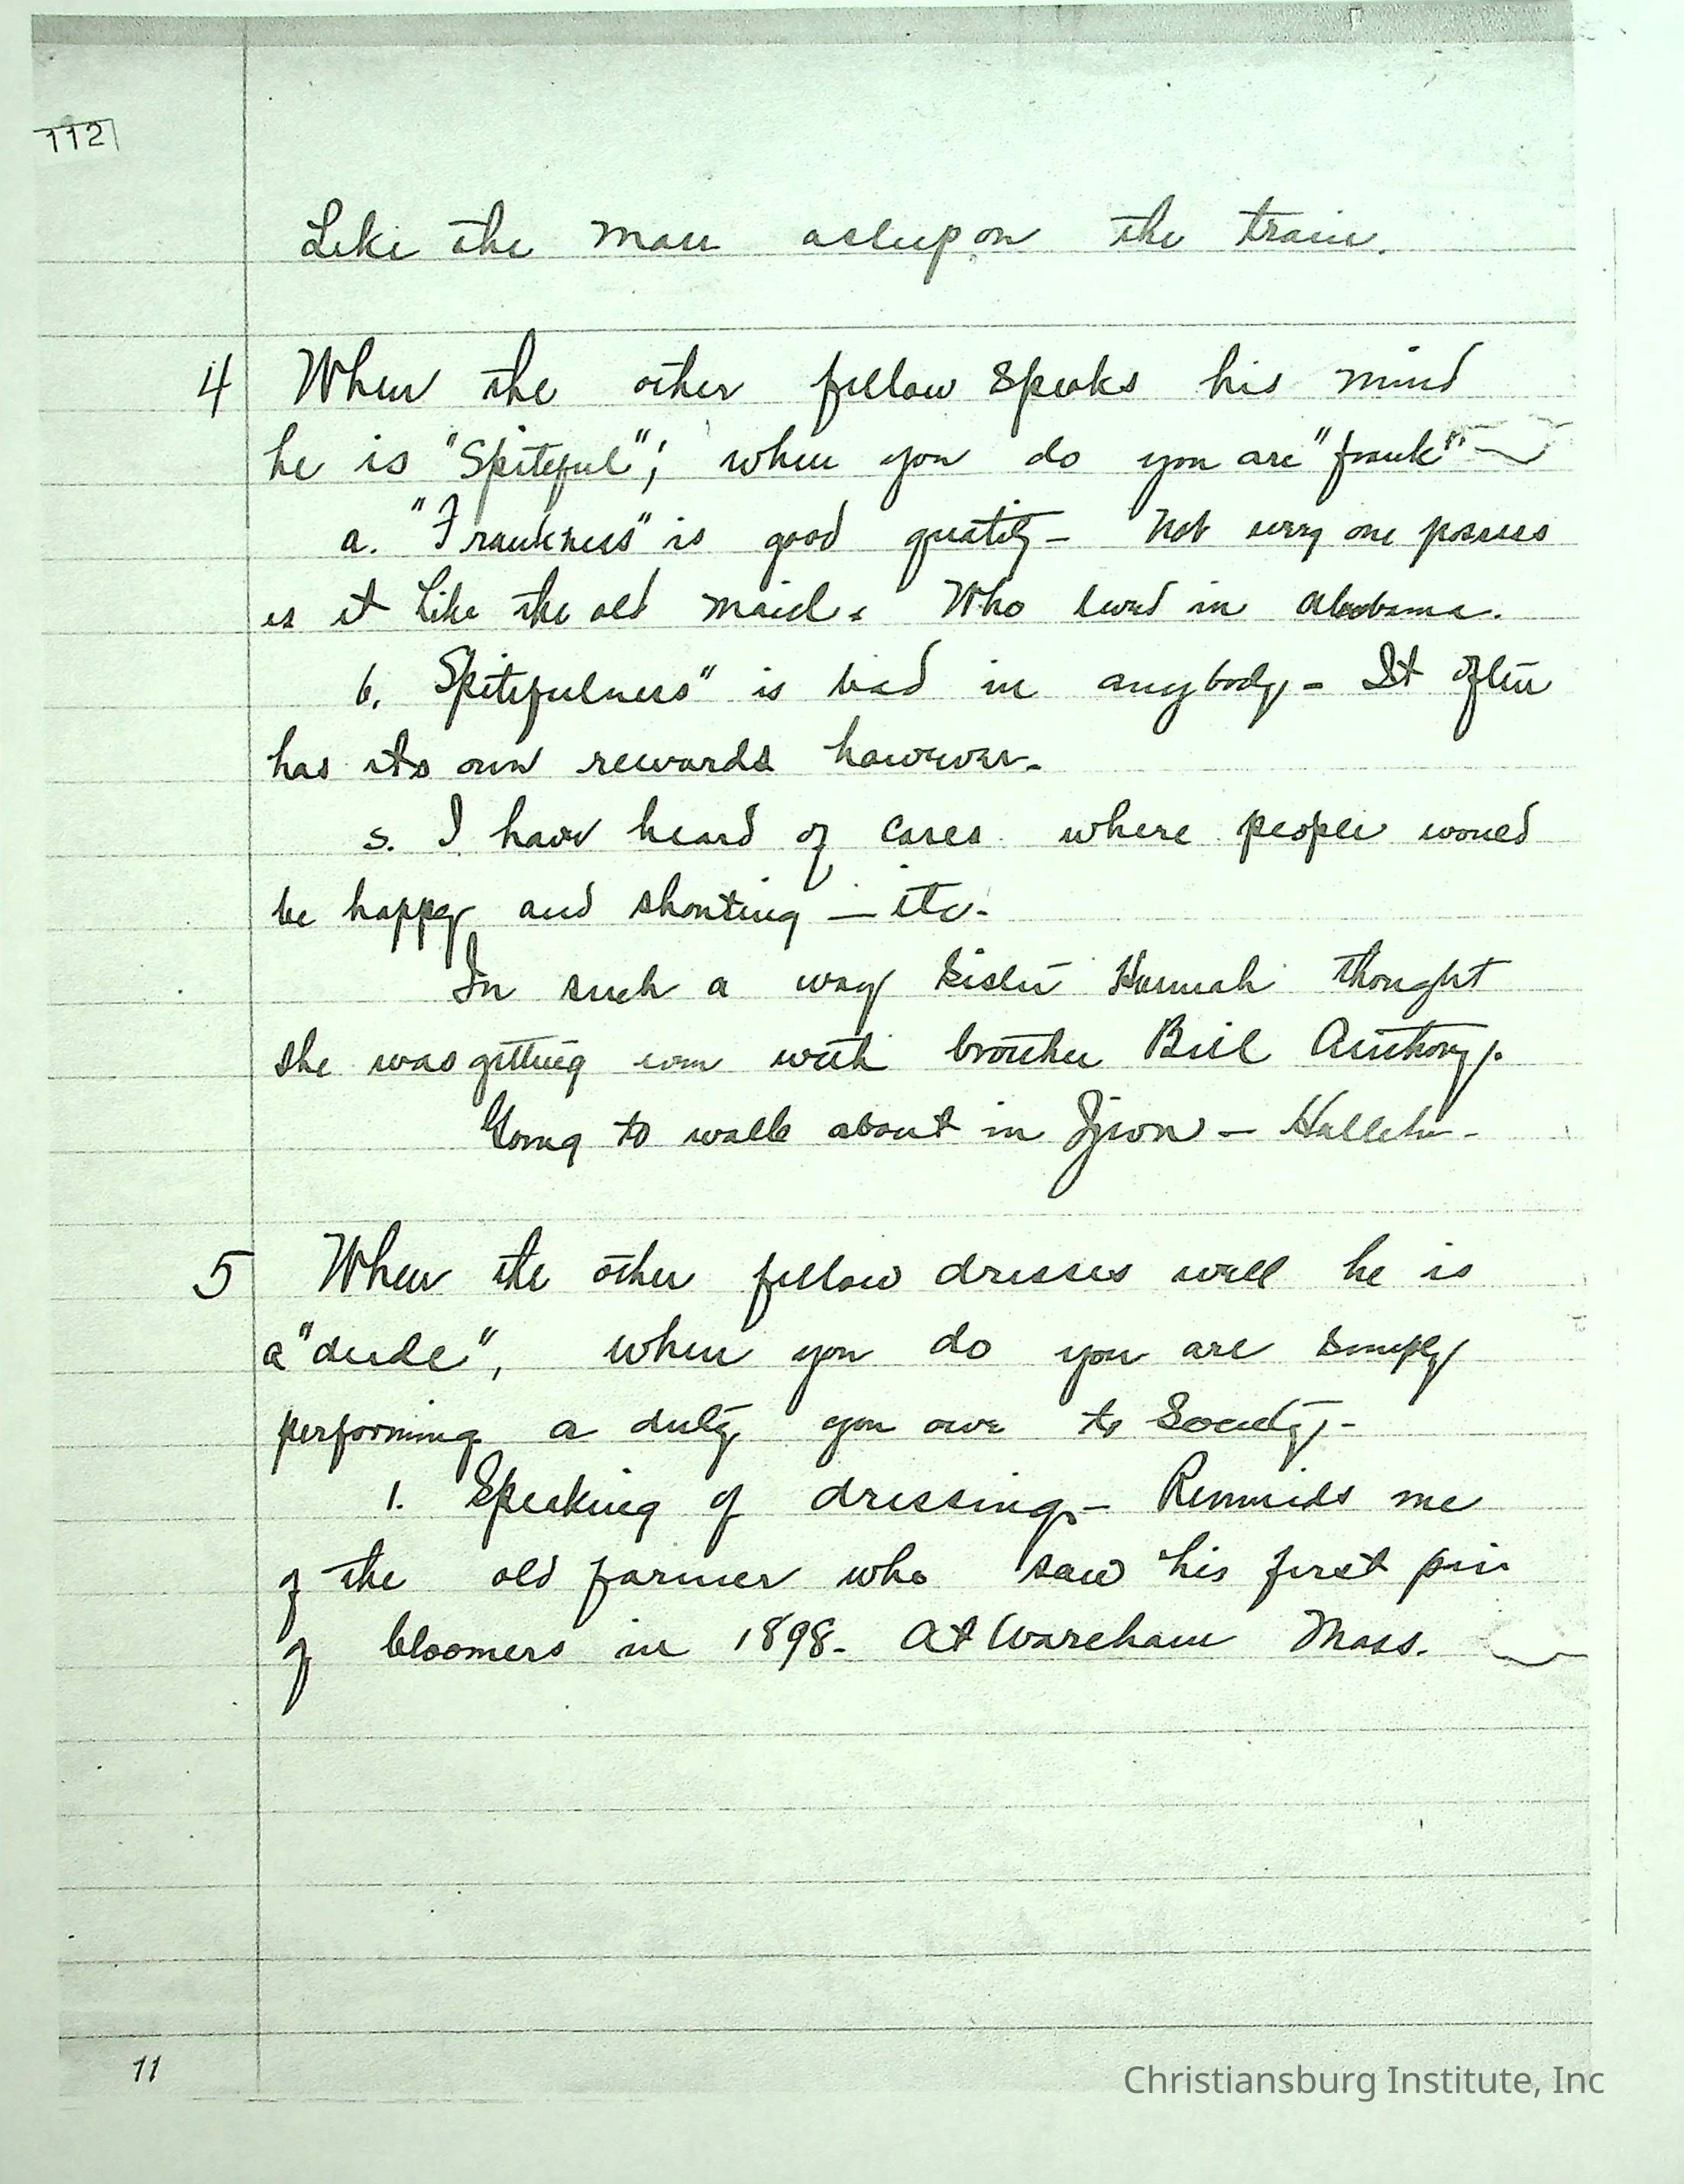 112
Like the man asleep on the train.
4 When the other fellow speaks his mind
he is "Spiteful"; when you do you are "frank"
a. "Frankness" is good quality - Not every one possess
es it like the old maid. Who lived in Alabama.
b. Spitefulness" is bad in anybody - It often
has its own rewards however.
s. I have heard of cases where people would
be happy and shouting - etc.
In such a way Sister Hannah thought
she was getting even with brother Bill Anthony.
Going to walk about in Zion - Hallelu-
5 When the other fellow dresses well he is
a "dude", when you do you are simply
performing a duty you owe to Society -
1. Speaking of dressing - Reminds me
of the old farmer who saw his first pair
of bloomers in 1898. At Wareham Mass.
11
Christiansburg Institute, Inc